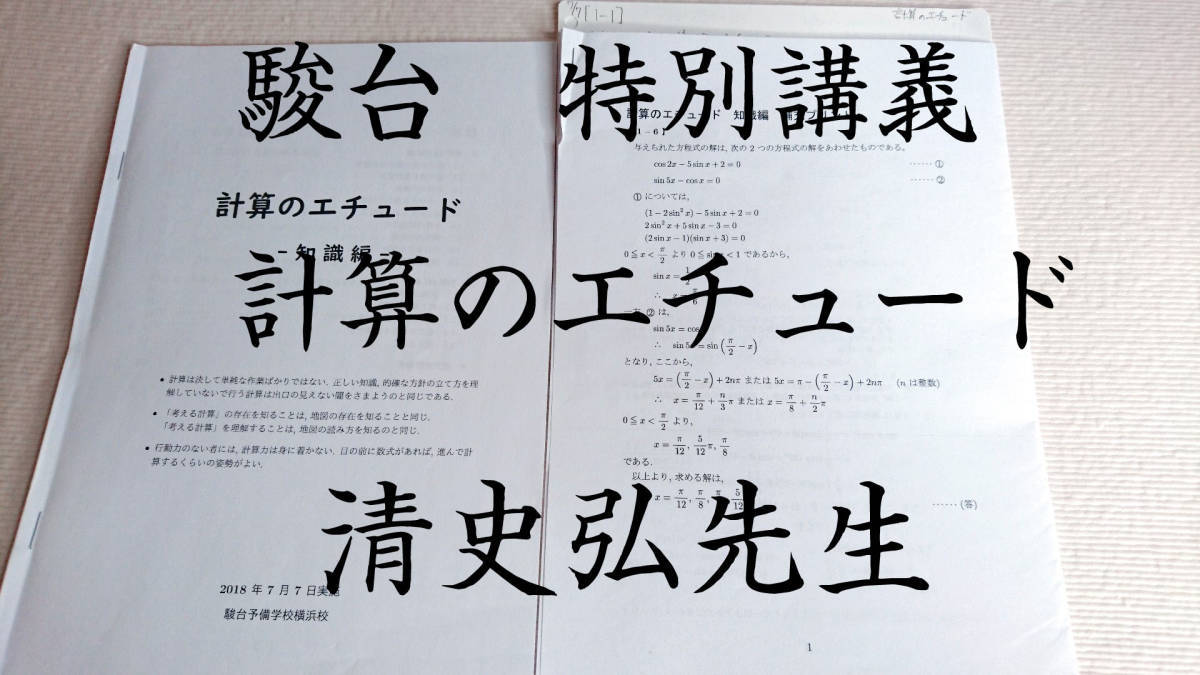 駿台 特別講義
計算のエチュード
清史弘先生
計算のエチュード
- 知識編
• 計算は決して単純な作業ばかりではない. 正しい知識, 的確な方針の立て方を理
解していないで行う計算は出口の見えない闇をさまようのと同じである.
• 「考える計算」の存在を知ることは, 地図の存在を知ることと同じ.
「考える計算」を理解することは, 地図の読み方を知るのと同じ.
• 行動力のない者には, 計算力は身に着かない. 目の前に数式があれば, 進んで計
算するくらいの姿勢がよい.
2018 年 7 月 7 日実施
駿台予備学校横浜校
7/7 [1-1]
計算のエチュード
計算のエチュード 知識編
1-6】
与えられた方程式の解は, 次の 2 つの方程式の解をあわせたものである.
cos 2x − 5 sin x + 2 = 0 ······ ①
sin 5x − cos x = 0 ······ ②
① については,
(1 − 2 sin² x) − 5 sin x + 2 = 0
2 sin² x + 5 sin x − 3 = 0
(2 sin x − 1)(sin x + 3) = 0
0 ≦ x < π/2 より 0 ≦ sin x < 1 であるから,
sin x = 1/2
∴ x = π/6
一方, ② は,
sin 5x = cos
∴ sin 5x = sin (π/2 − x)
となり, ここから,
5x = (π/2 − x) + 2nπ または 5x = π − (π/2 − x) + 2nπ (n は整数)
∴ x = π/12 + n/3 π または x = π/8 + n/2 π
0 ≦ x < π/2 より,
x = π/12, 5/12 π, π/8
である.
以上より, 求める解は,
x = π/12, π/8, π 5/12 ······ (答)
1